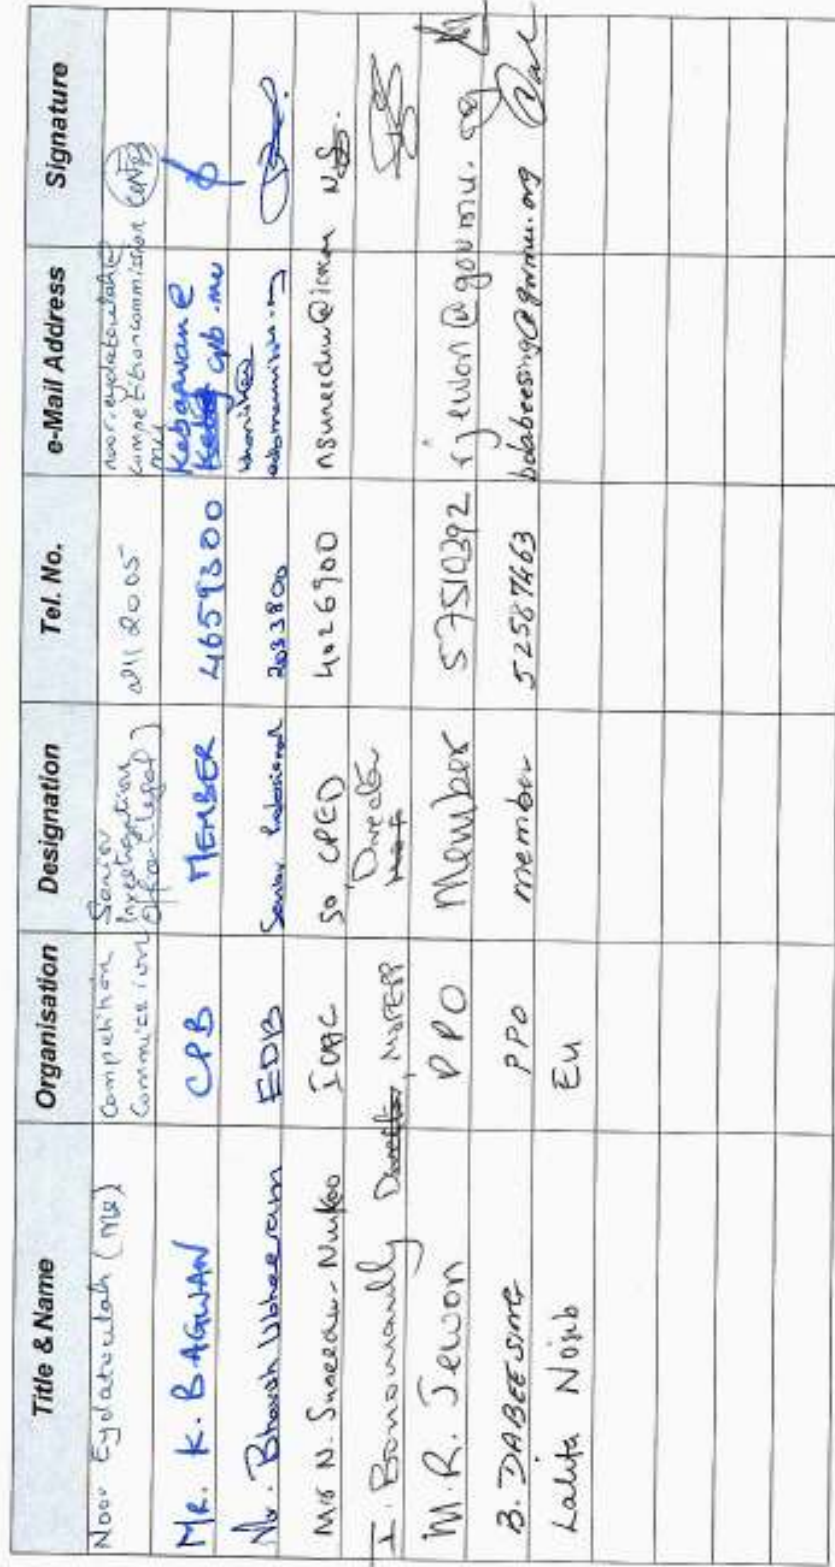 Title & Name Organisation Designation Tel. No. e-Mail Address Signature
Noor Eydatoulah (Mr) Competition Commission Senior Investigations Officer (Legal) 211 2005 noor.eydatoulah@competitioncommission.mu
MR. K. BAGWAN CPB MEMBER 4659300 Kebagwan@cpb.mu
Mr. Bhavish EDB Senior Professional 2033800
Mrs N. Suneechur-Nunkoo ICAC SO CPED 4026900
I. Bonomaully MoFEPD Director
M.R. Jewon PPO Member 57510392 rjewon@govmu.org
B. DABEESING PPO member 52587463 bdabeesing@govmu.org
Lalita Nojib EU